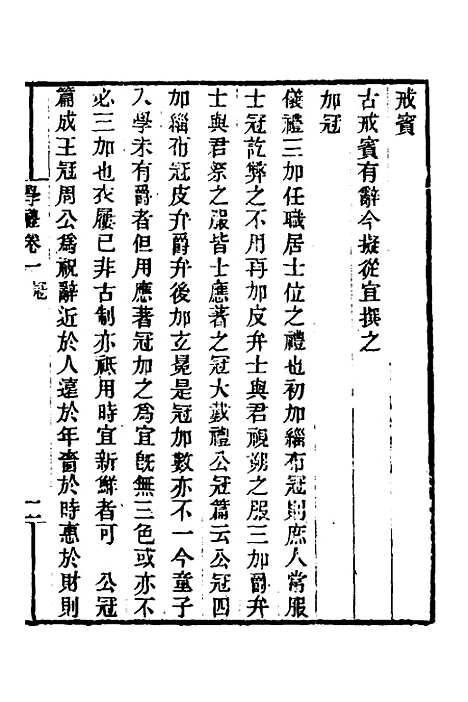 戒賓
古戒賓有辭今擬從宜撰之
加冠
儀禮三加任職居士位之禮也初加緇布冠則庶人常服
士冠訖弊之不用再加皮弁士與君視朔之服三加爵弁
士與君祭之服皆士應著之冠大戴禮公冠篇云公冠四
加緇布冠皮弁爵弁後加玄冕是冠加數亦不一今童子
入學未有爵者但用應著冠加之爲宜既無三色或亦不
必三加也衣屨已非古制亦祇用時宜新鮮者可　公冠
篇成王冠周公爲祝辭近於人遠於年嗇於時惠於財則
學禮卷一 冠 二